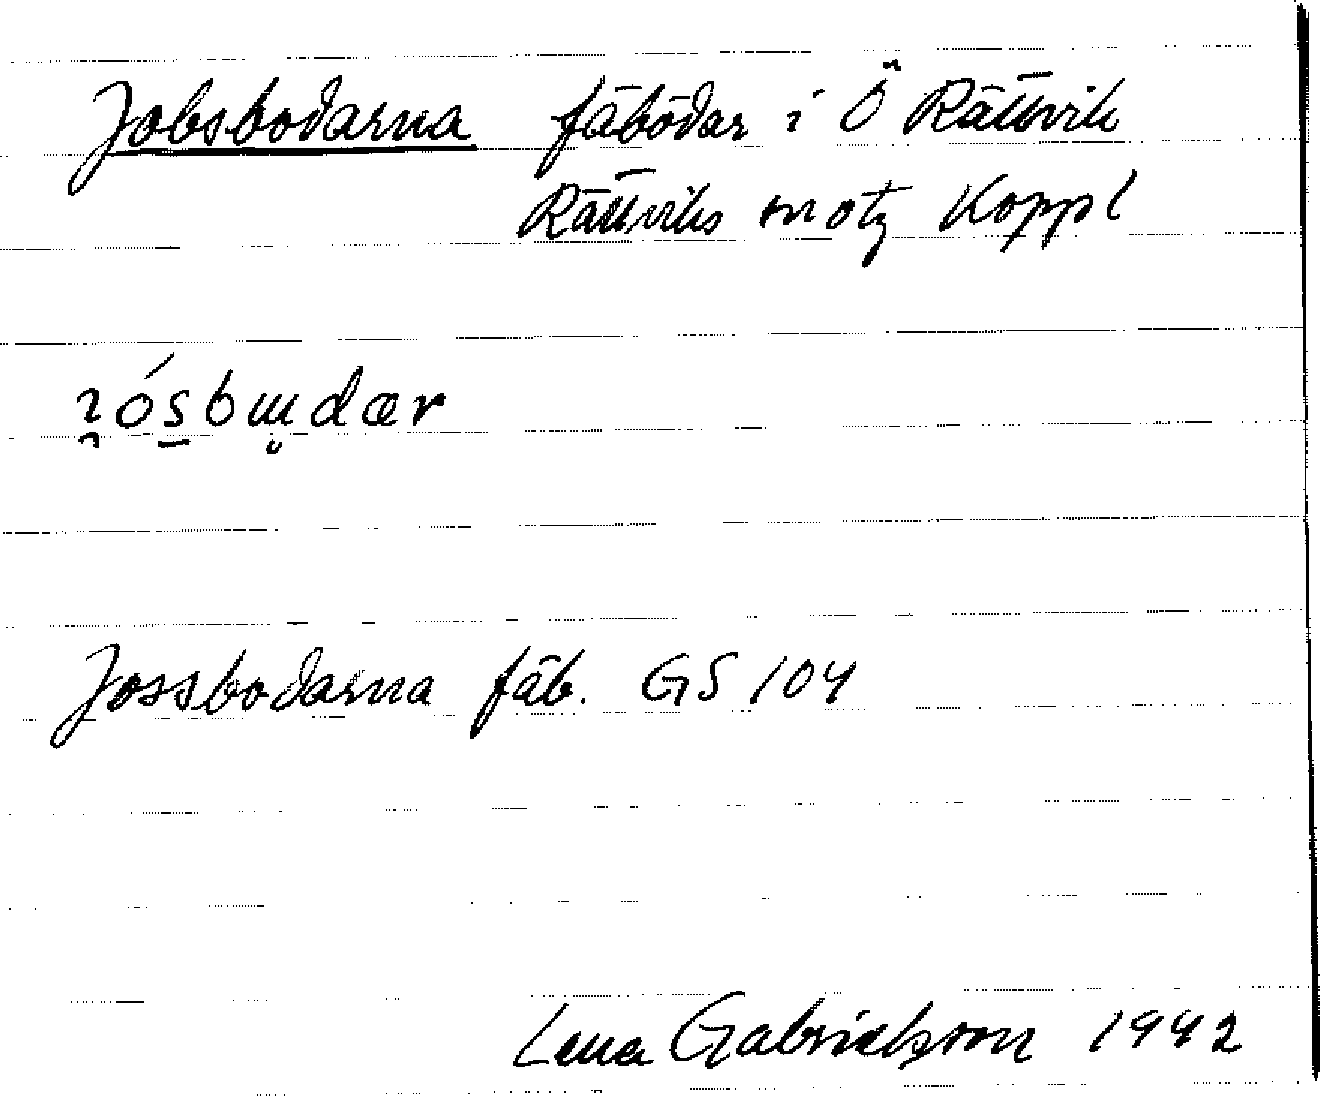 Jobsbodarna fäbodar i Ö Rättvik
Rättviks motz Koppl
Jossbodarna fäb. GS 104
Lena Gabrielsson 1942